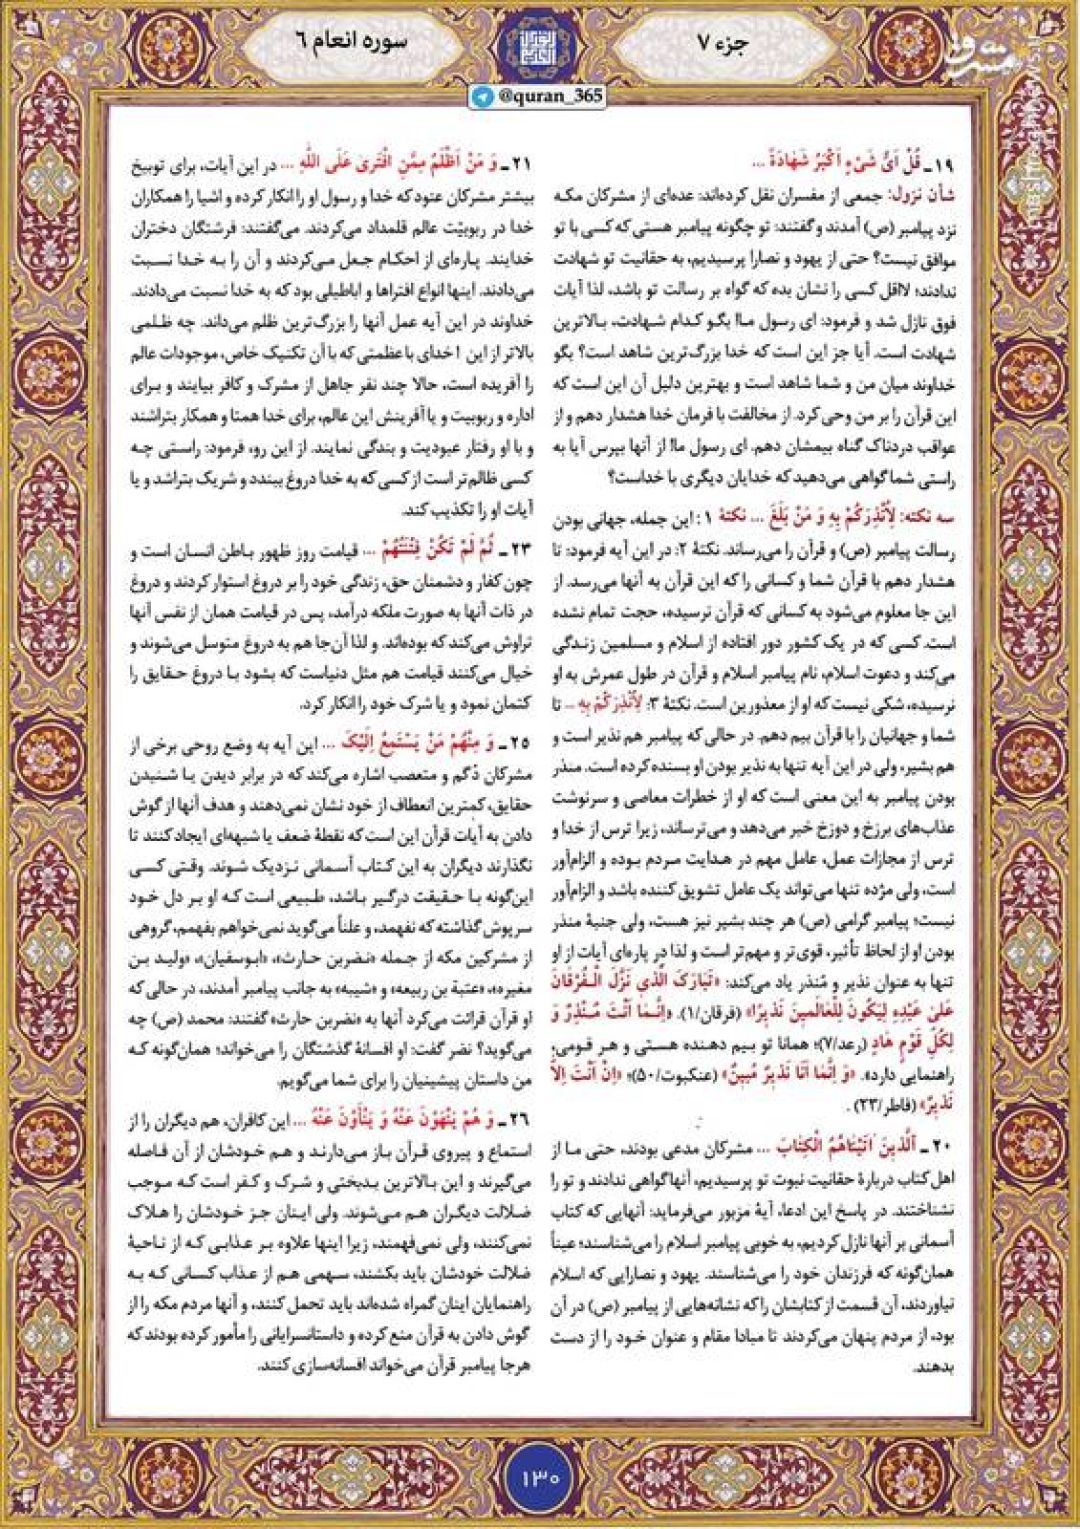 جزء ۷
سوره انعام ۶
@quran_365
۱۹ـ قُلْ اَیُّ شَیْءٍ اَکْبَرُ شَهَادَةً ...
شأن نزول: جمعی از مفسران نقل کرده‌اند: عده‌ای از مشرکان مکه
نزد پیامبر (ص) آمدند و گفتند: تو چگونه پیامبر هستی که کسی با تو
موافق نیست؟ حتی از یهود و نصارا پرسیدیم، به حقانیت تو شهادت
ندادند؛ لااقل کسی را نشان بده که گواه بر رسالت تو باشد، لذا آیات
فوق نازل شد و فرمود: ای رسول ما! بگو کدام شهادت، بالاترین
شهادت است. آیا جز این است که خدا بزرگ‌ترین شاهد است؟ بگو
خداوند میان من و شما شاهد است و بهترین دلیل آن این است که
این قرآن را بر من وحی کرد. از مخالفت با فرمان خدا هشدار دهم و از
عواقب دردناک گناه بیمشان دهم. ای رسول ما! از آنها بپرس آیا به
راستی شما گواهی می‌دهید که خدایان دیگری با خداست؟
سه نکته: لِأُنْذِرَکُمْ بِهِ وَ مَنْ بَلَغَ ... نکتهٔ ۱: این جمله، جهانی بودن
رسالت پیامبر (ص) و قرآن را می‌رساند. نکتهٔ ۲: در این آیه فرمود: تا
هشدار دهم با قرآن شما و کسانی را که این قرآن به آنها می‌رسد. از
این جا معلوم می‌شود به کسانی که قرآن نرسیده، حجت تمام نشده
است. کسی که در یک کشور دور افتاده از اسلام و مسلمین زندگی
می‌کند و دعوت اسلام، نام پیامبر اسلام و قرآن در طول عمرش به او
نرسیده، شکی نیست که او از معذورین است. نکتهٔ ۳: لِأُنْذِرَکُمْ بِهِ ... تا
شما و جهانیان را با قرآن بیم دهم. در حالی که پیامبر هم نذیر است و
هم بشیر، ولی در این آیه تنها به نذیر بودن او بسنده کرده است. منذر
بودن پیامبر به این معنی است که او از خطرات معاصی و سرنوشت
عذاب‌های برزخ و دوزخ خبر می‌دهد و می‌ترساند، زیرا ترس از خدا و
ترس از مجازات عمل، عامل مهم در هدایت مردم بوده و الزام‌آور
است، ولی مژده تنها می‌تواند یک عامل تشویق کننده باشد و الزام‌آور
نیست؛ پیامبر گرامی (ص) هر چند بشیر نیز هست، ولی جنبهٔ منذر
بودن او از لحاظ تأثیر، قوی‌تر و مهم‌تر است و لذا در پاره‌ای آیات از او
تنها به عنوان نذیر و مُنذر یاد می‌کند: «تَبَارَکَ الَّذِی نَزَّلَ الْفُرْقَانَ
عَلیٰ عَبْدِهِ لِیَکُونَ لِلْعَالَمِینَ نَذِیرًا» (فرقان/۱). «اِنَّمَا اَنْتَ مُنْذِرٌ وَ
لِکُلِّ قَوْمٍ هَادٍ (رعد/۷)؛ همانا تو بیم دهنده هستی و هر قومی،
راهنمایی دارد». «وَ اِنَّمَا اَنَا نَذِیرٌ مُبِینٌ» (عنکبوت/۵۰)؛ «اِنْ اَنْتَ اِلَّا
نَذِیرٌ» (فاطر/۲۳).
۲۰ـ اَلَّذِینَ اٰتَیْنَاهُمُ الْکِتَابَ ... مشرکان مدعی بودند، حتی ما از
اهل کتاب دربارهٔ حقانیت نبوت تو پرسیدیم، آنها گواهی ندادند و تو را
نشناختند. در پاسخ این ادعا، آیهٔ مزبور می‌فرماید: آنهایی که کتاب
آسمانی بر آنها نازل کردیم، به خوبی پیامبر اسلام را می‌شناسند؛ عیناً
همان‌گونه که فرزندان خود را می‌شناسند. یهود و نصارایی که اسلام
نیاوردند، آن قسمت از کتابشان را که نشانه‌هایی از پیامبر (ص) در آن
بود، از مردم پنهان می‌کردند تا مبادا مقام و عنوان خود را از دست
بدهند.
۲۱ـ وَ مَنْ اَظْلَمُ مِمَّنِ افْتَرٰی عَلَی اللهِ ... در این آیات، برای توبیخ
بیشتر مشرکان عنود که خدا و رسول او را انکار کرده و اشیا را همکاران
خدا در ربوبیّت عالم قلمداد می‌کردند. می‌گفتند: فرشتگان دختران
خدایند. پاره‌ای از احکام جعل می‌کردند و آن را به خدا نسبت
می‌دادند. اینها انواع افتراها و اباطیلی بود که به خدا نسبت می‌دادند.
خداوند در این آیه عمل آنها را بزرگ‌ترین ظلم می‌داند. چه ظلمی
بالاتر از این! خدای با عظمتی که با آن تکنیک خاص، موجودات عالم
را آفریده است، حالا چند نفر جاهل از مشرک و کافر بیایند و برای
اداره و ربوبیت و یا آفرینش این عالم، برای خدا همتا و همکار بتراشند
و با او رفتار عبودیت و بندگی نمایند. از این رو، فرمود: راستی چه
کسی ظالم‌تر است از کسی که به خدا دروغ ببندد و شریک بتراشد و یا
آیات او را تکذیب کند.
۲۳ـ ثُمَّ لَمْ تَکُنْ فِتْنَتُهُمْ ... قیامت روز ظهور باطن انسان است و
چون کفار و دشمنان حق، زندگی خود را بر دروغ استوار کردند و دروغ
در ذات آنها به صورت ملکه درآمد، پس در قیامت همان از نفس آنها
تراوش می‌کند که بوده‌اند. و لذا آن‌جا هم به دروغ متوسل می‌شوند و
خیال می‌کنند قیامت هم مثل دنیاست که بشود با دروغ حقایق را
کتمان نمود و یا شرک خود را انکار کرد.
۲۵ـ وَ مِنْهُمْ مَنْ یَسْتَمِعُ اِلَیْکَ ... این آیه به وضع روحی برخی از
مشرکان دُگم و متعصب اشاره می‌کند که در برابر دیدن یا شنیدن
حقایق، کمترین انعطاف از خود نشان نمی‌دهند و هدف آنها از گوش
دادن به آیات قرآن این است که نقطهٔ ضعف یا شبهه‌ای ایجاد کنند تا
نگذارند دیگران به این کتاب آسمانی نزدیک شوند. وقتی کسی
این‌گونه با حقیقت درگیر باشد، طبیعی است که او بر دل خود
سرپوش گذاشته که نفهمد، و علناً می‌گوید نمی‌خواهم بفهمم، گروهی
از مشرکین مکه از جمله «نضربن حارث»، «ابوسفیان»، «ولید بن
مغیره»، «عتبة بن ربیعه» و «شیبه» به جانب پیامبر آمدند، در حالی که
او قرآن قرائت می‌کرد آنها به «نضربن حارث» گفتند: محمد (ص) چه
می‌گوید؟ نضر گفت: او افسانهٔ گذشتگان را می‌خواند؛ همان‌گونه که
من داستان پیشینیان را برای شما می‌گویم.
۲۶ـ وَ هُمْ یَنْهَوْنَ عَنْهُ وَ یَنْأَوْنَ عَنْهُ ... این کافران، هم دیگران را از
استماع و پیروی قرآن باز می‌دارند و هم خودشان از آن فاصله
می‌گیرند و این بالاترین بدبختی و شرک و کفر است که موجب
ضلالت دیگران هم می‌شوند. ولی اینان جز خودشان را هلاک
نمی‌کنند، ولی نمی‌فهمند، زیرا اینها علاوه بر عذابی که از ناحیهٔ
ضلالت خودشان باید بکشند، سهمی هم از عذاب کسانی که به
راهنمایان اینان گمراه شده‌اند باید تحمل کنند، و آنها مردم مکه را از
گوش دادن به قرآن منع کرده و داستانسرایانی را مأمور کرده بودند که
هرجا پیامبر قرآن می‌خواند افسانه‌سازی کنند.
۱۳۰